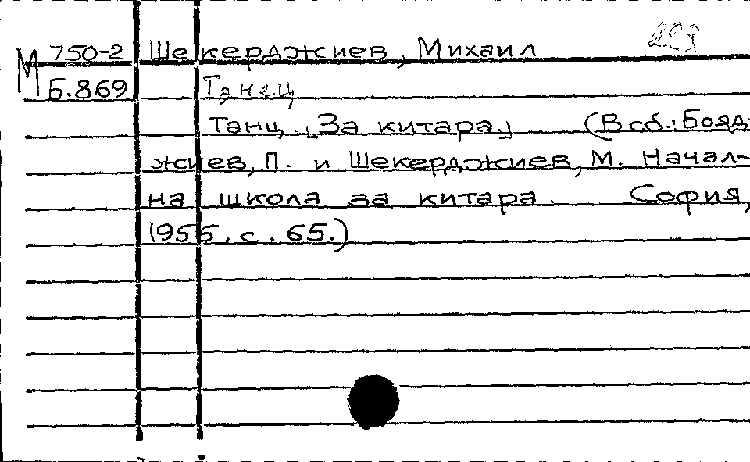 М 750-2 Шекерджиев, Михаил
Б.869 Танец
Танц. За китара. (В сб.: Бояд-
жиев, П. и Шекерджиев, М. Начал-
на школа за китара. София,
1955. с. 65.)